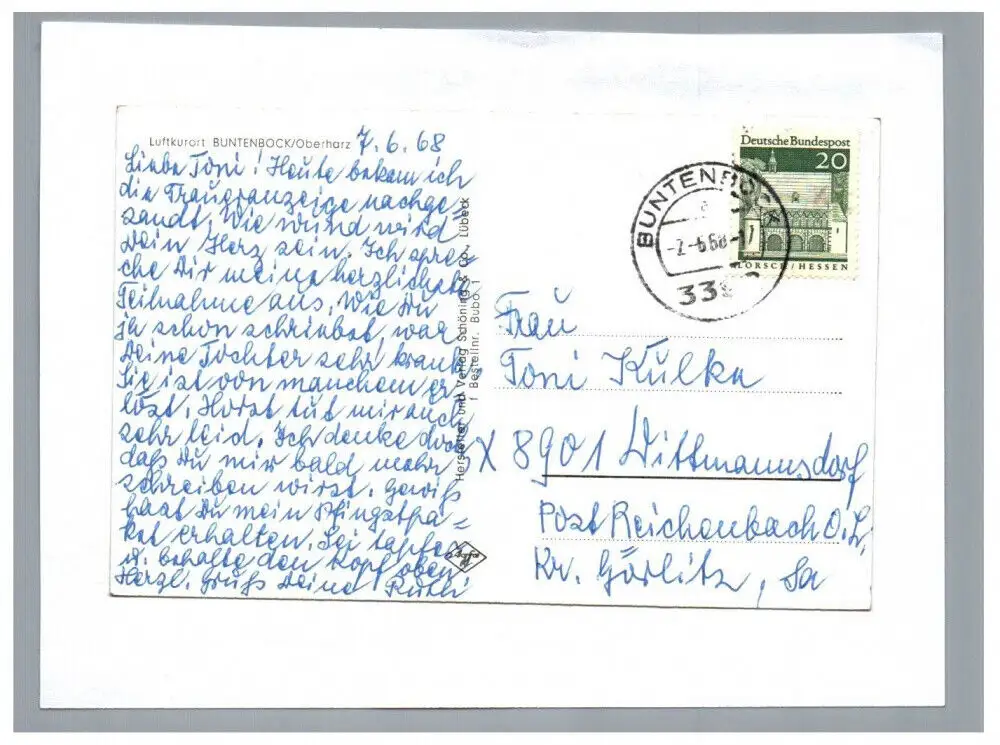 Luftkurort BUNTENBOCK/Oberharz 7.6.68
Liebe Toni! Heute bekam ich
die Traueranzeige nachge=
sandt. Wie wund wird
Dein Herz sein. Ich spre=
che Dir meine herzlichste
Teilnahme aus. Wie Du
ja schon schriebst, war
Deine Tochter sehr krank.
Sie ist von manchem er=
löst. Horst tut mir auch
sehr leid. Ich denke doch
daß Du mir bald mehr
schreiben wirst. Gewiß
hast Du mein Pfingstpa=
ket erhalten. Sei tapfer
u. behalte den Kopf oben
Herzl. Gruß Deine Ruth
Hersteller und Verlag Schöning & Co., Lübeck
Bestellnr. Bubo. 1
Deutsche Bundespost
20
LORSCH/HESSEN
BUNTENBOCK
a
Frau
Toni Kulka
X 8901 Dittmannsdorf
Post Reichenbach O.L.
Kr. Görlitz, Sa